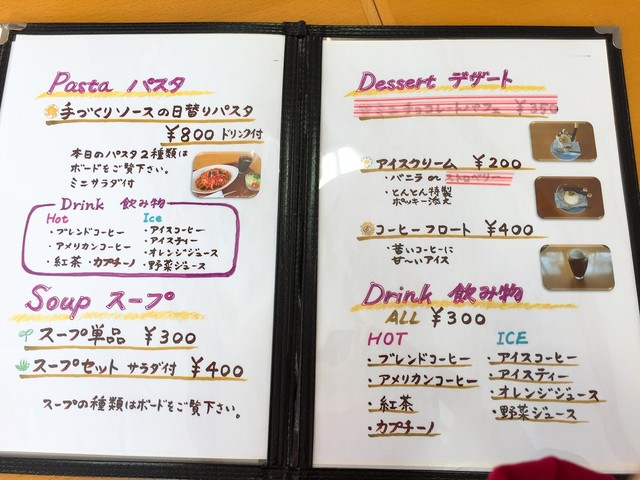 Pasta パスタ
手づくりソースの日替りパスタ
¥800 ドリンク付
本日のパスタ2種類は
ボードをご覧下さい。
ミニサラダ付
Drink 飲み物
Hot Ice
・ブレンドコーヒー ・アイスコーヒー
・アメリカンコーヒー ・アイスティー
・紅茶・カプチーノ ・オレンジジュース
・野菜ジュース
Soup スープ
スープ単品 ¥300
スープセット サラダ付 ¥400
スープの種類はボードをご覧下さい。
Dessert デザート
ミニチョコレートパフェ ¥350
アイスクリーム ¥200
・バニラ or ストロベリー
・とんとん特製
ポッキー添え
コーヒーフロート ¥400
・苦いコーヒーに
甘〜いアイス
Drink 飲み物
ALL ¥300
HOT ICE
・ブレンドコーヒー ・アイスコーヒー
・アメリカンコーヒー ・アイスティー
・紅茶 ・オレンジジュース
・カプチーノ ・野菜ジュース